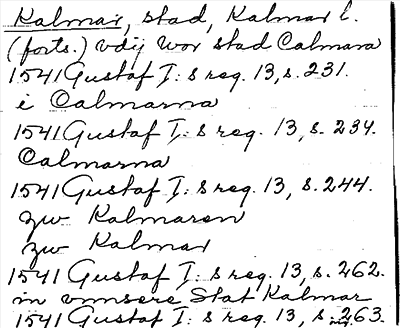 Kalmar, stad, Kalmar l.
(forts.) vdij vor stad Calmara
1541 Gustaf I:s reg. 13, s. 231.
i Calmarna
1541 Gustaf I:s reg. 13, s. 234.
Calmarna
1541 Gustaf I:s reg. 13, s. 244.
zw Kalmaren
zw Kalmar
1541 Gustaf I:s reg. 13, s. 262.
in vnnsere Stat Kalmar
1541 Gustaf I:s reg. 13, s. 263.